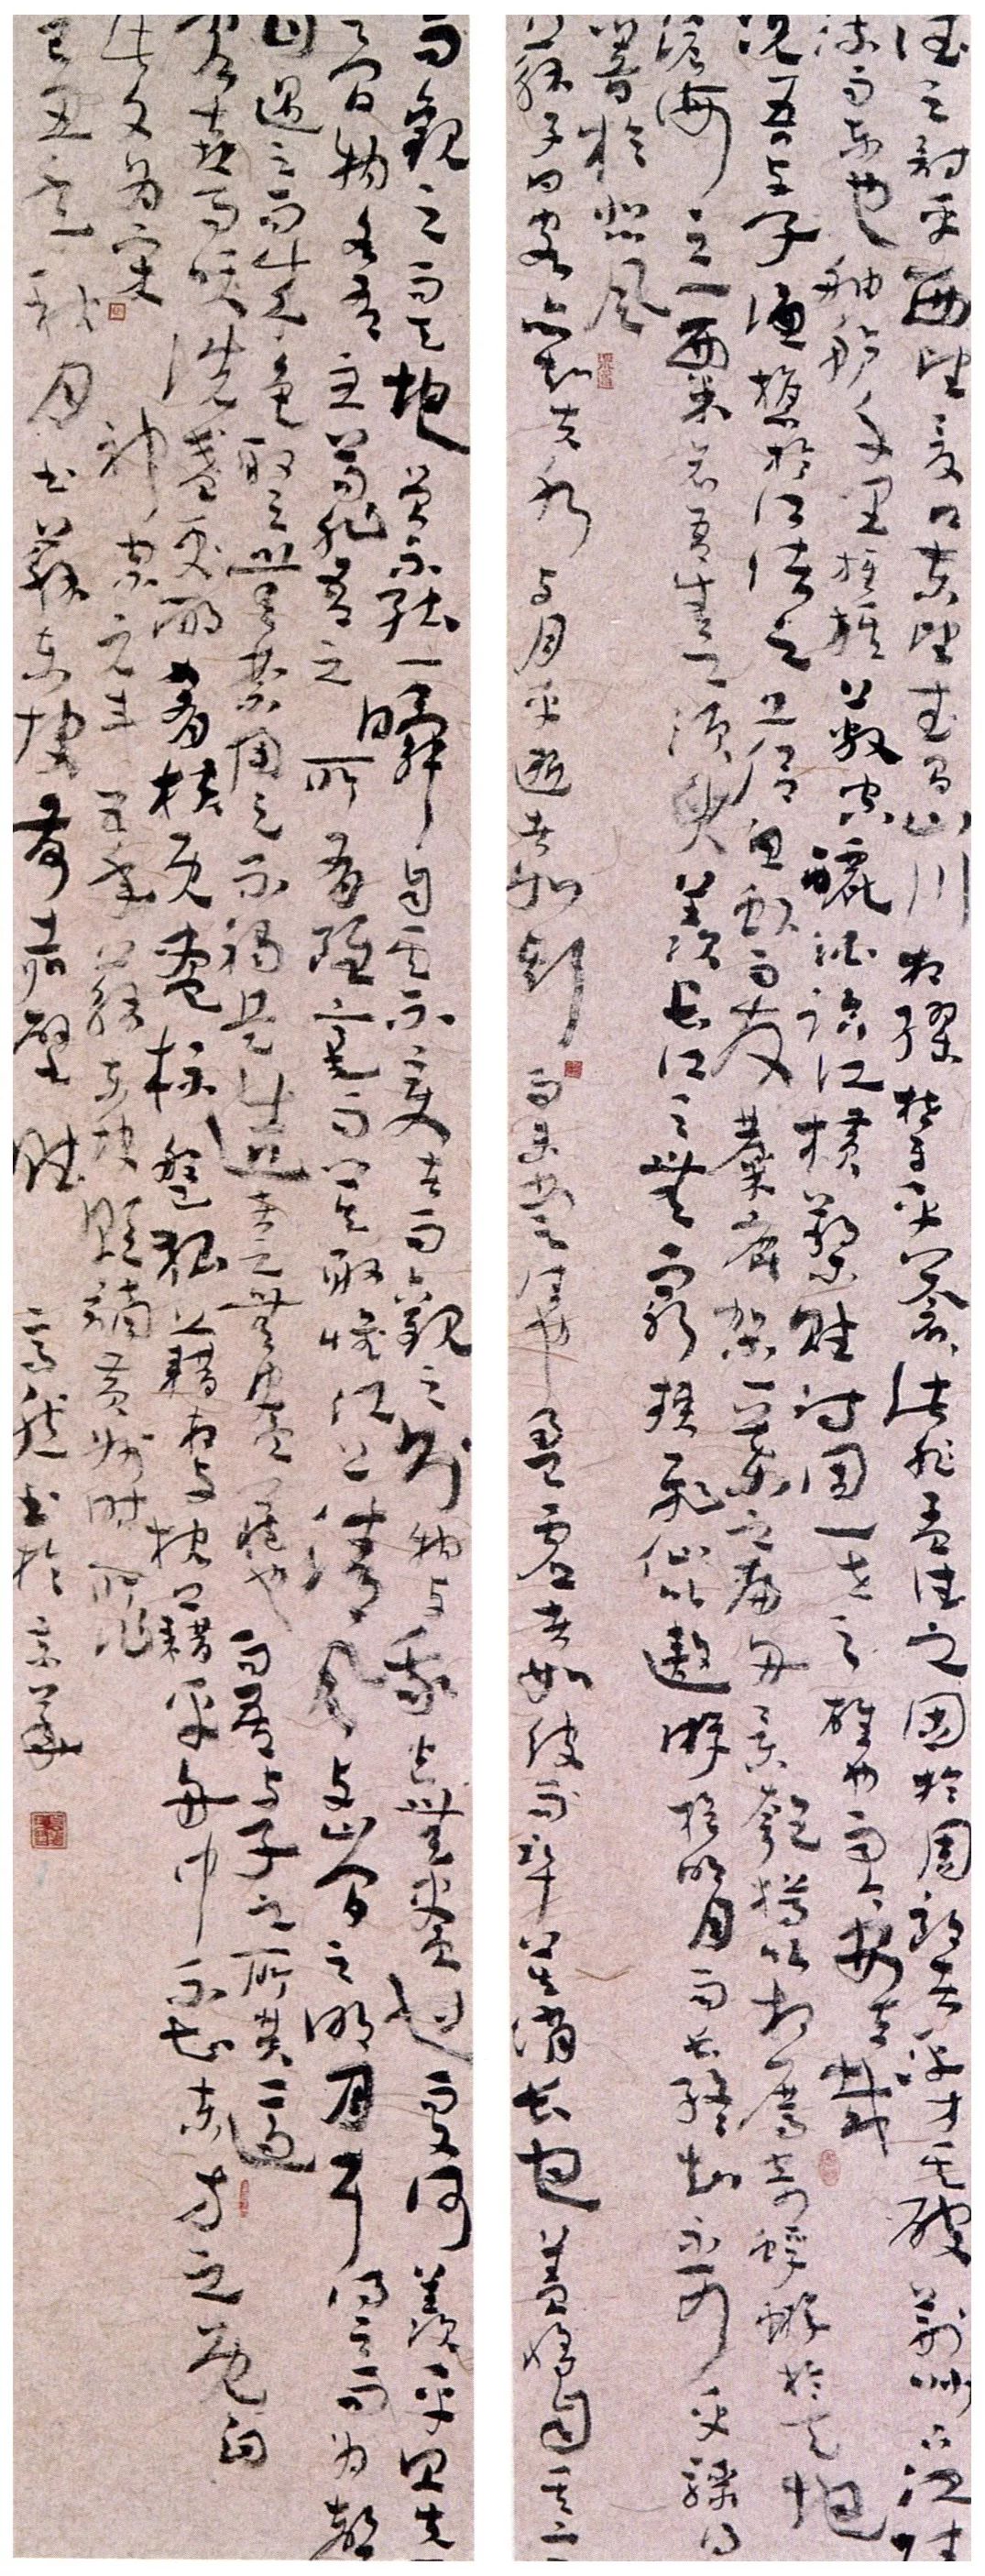 德之詩乎西望夏口東望武昌山川相繆鬱乎蒼此非孟德之困於周郎者乎方其破荊州下江陵
流而東也舳艫千里旌旗蔽空釃酒臨江橫槊賦詩固一世之雄也而今安在哉
況吾與子漁樵於江渚之上侶魚蝦而友麋鹿駕一葉之扁舟舉匏樽以相屬寄蜉蝣於天地
滄海之一粟哀吾生之須臾羨長江之無窮挾飛仙以遨遊抱明月而長終知不可乎驟得
響於悲風
蘇子曰客亦知夫水與月乎逝者如斯而未嘗往也盈虛者如彼而卒莫消長也蓋將自其
而觀之而天地曾不能一瞬自其不變者而觀之則物與我皆無盡也而又何羨乎且夫天
之間物各有主苟非吾之所有雖一毫而莫取惟江上之清風與山間之明月耳得之而為聲
目遇之而成色取之無禁用之不竭是造者之無盡藏也而吾與子之所共適
客喜而笑洗盞更酌肴核既盡杯盤狼藉相與枕藉乎舟中不知東方之既白
此文為宋神宗元豐五年蘇東坡貶謫黃州時所作
己丑之秋月書蘇東坡前赤壁賦 書於京華